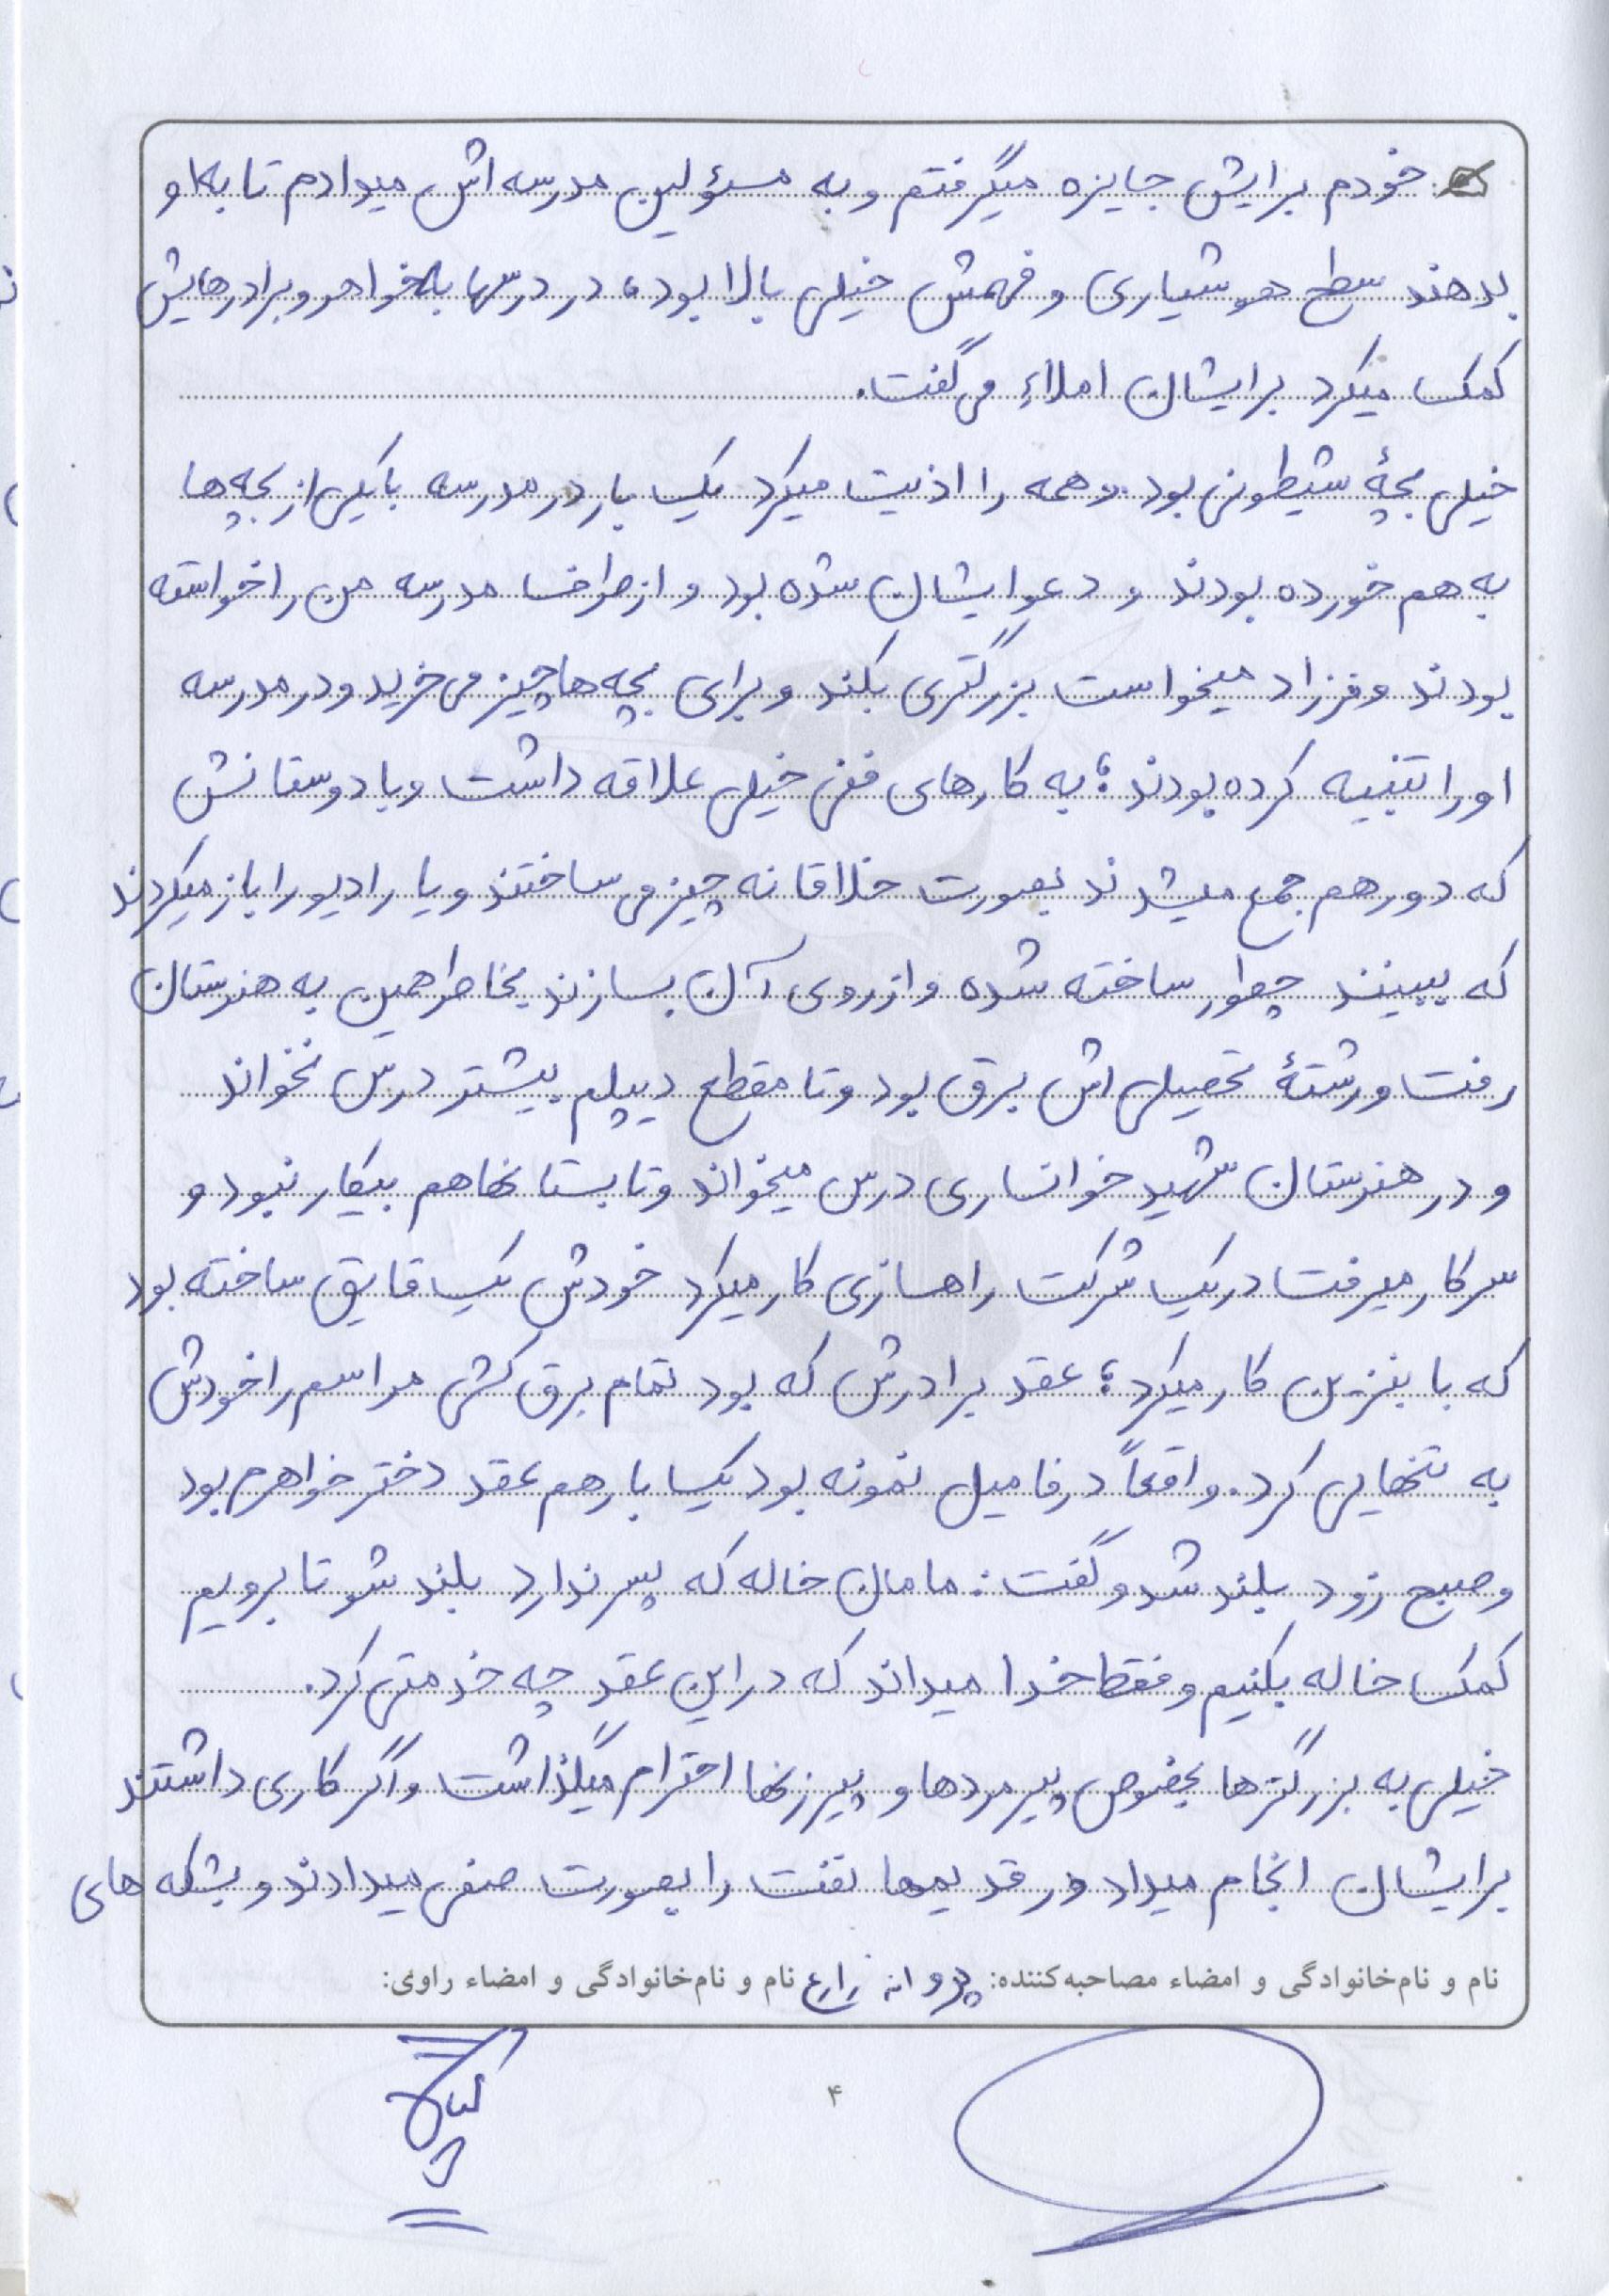 خودم برایش جایزه میگرفتم و به مسئولین مدرسه اش میدادم تا به او
بدهند سطح هوشیاری و فهمش خیلی بالا بود، در درسها به خواهر و برادرهایش
کمک میکرد برایشان املاء می گفت.
خیلی بچهٔ شیطونی بود. همه را اذیت میکرد یک بار در مدرسه با یکی از بچه ها
به هم خورده بودند و دعوایشان شده بود و از طرف مدرسه من را خواسته
بودند و فرزاد میخواست بزرگتری بکند و برای بچه ها چیز می خرید و در مدرسه
او را تنبیه کرده بودند؛ به کارهای فنی خیلی علاقه داشت و با دوستانش
که دور هم جمع میشدند بصورت خلاقانه چیز می ساختند و یا رادیو را باز میکردند
که ببینند چطور ساخته شده و از روی آن بسازند بخاطر همین به هنرستان
رفت و رشتهٔ تحصیلی اش برق بود و تا مقطع دیپلم بیشتر درس نخواند
و در هنرستان شهید خوانساری درس میخواند و تابستانها هم بیکار نبود و
سر کار میرفت در یک شرکت راهسازی کار میکرد خودش یک قایق ساخته بود
که با بنزین کار میکرد؛ عقد برادرش که بود تمام برق کشی مراسم را خودش
به تنهایی کرد. واقعاً در فامیل نمونه بود یک بار هم عقد دختر خواهرم بود
و صبح زود بلند شد و گفت: مامان خاله که پسر ندارد بلند شو تا برویم
کمک خاله بکنیم و فقط خدا میداند که در این عقد چه خدمتی کرد.
خیلی به بزرگترها بخصوص پیرمردها و پیرزنها احترام میگذاشت و اگر کاری داشتند
برایشان انجام میداد در قدیمها نفت را بصورت صنفی میدادند و بشکه های
نام و نام‌خانوادگی و امضاء مصاحبه‌کننده: پروانه زارع نام و نام‌خانوادگی و امضاء راوی:
۴